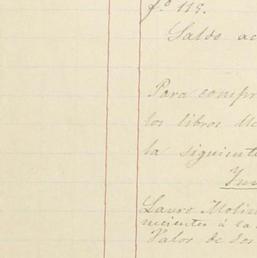 fº 119.
Saldo ac
Para compr
los libros de
la siguiente
Inv
Lauro Molin
necientes á la
Valor de dos